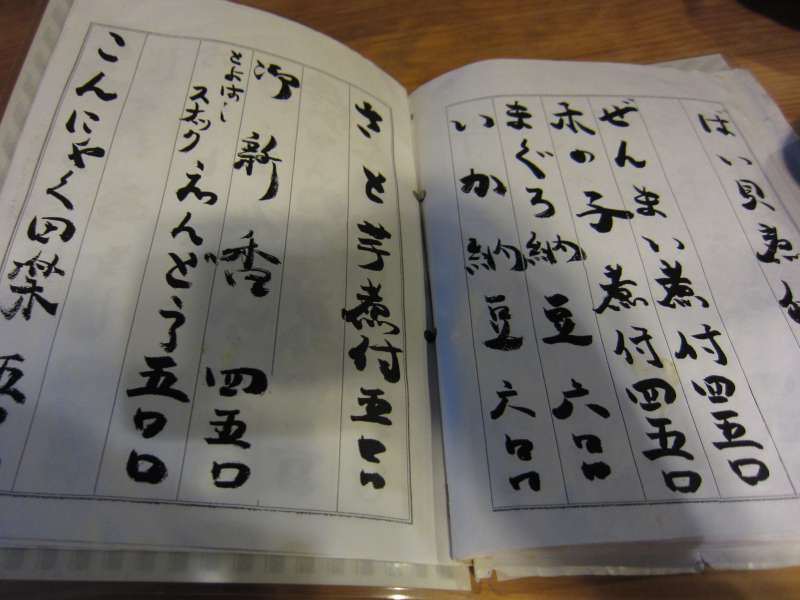 ばい貝煮
ぜんまい煮付四五〇
木の子煮付四五〇
まぐろ納豆六〇〇
いか納豆六〇〇
さと芋煮付五〇〇
御新香 四五〇
とよはしスナックえんどう五〇〇
こんにゃく田楽 五〇